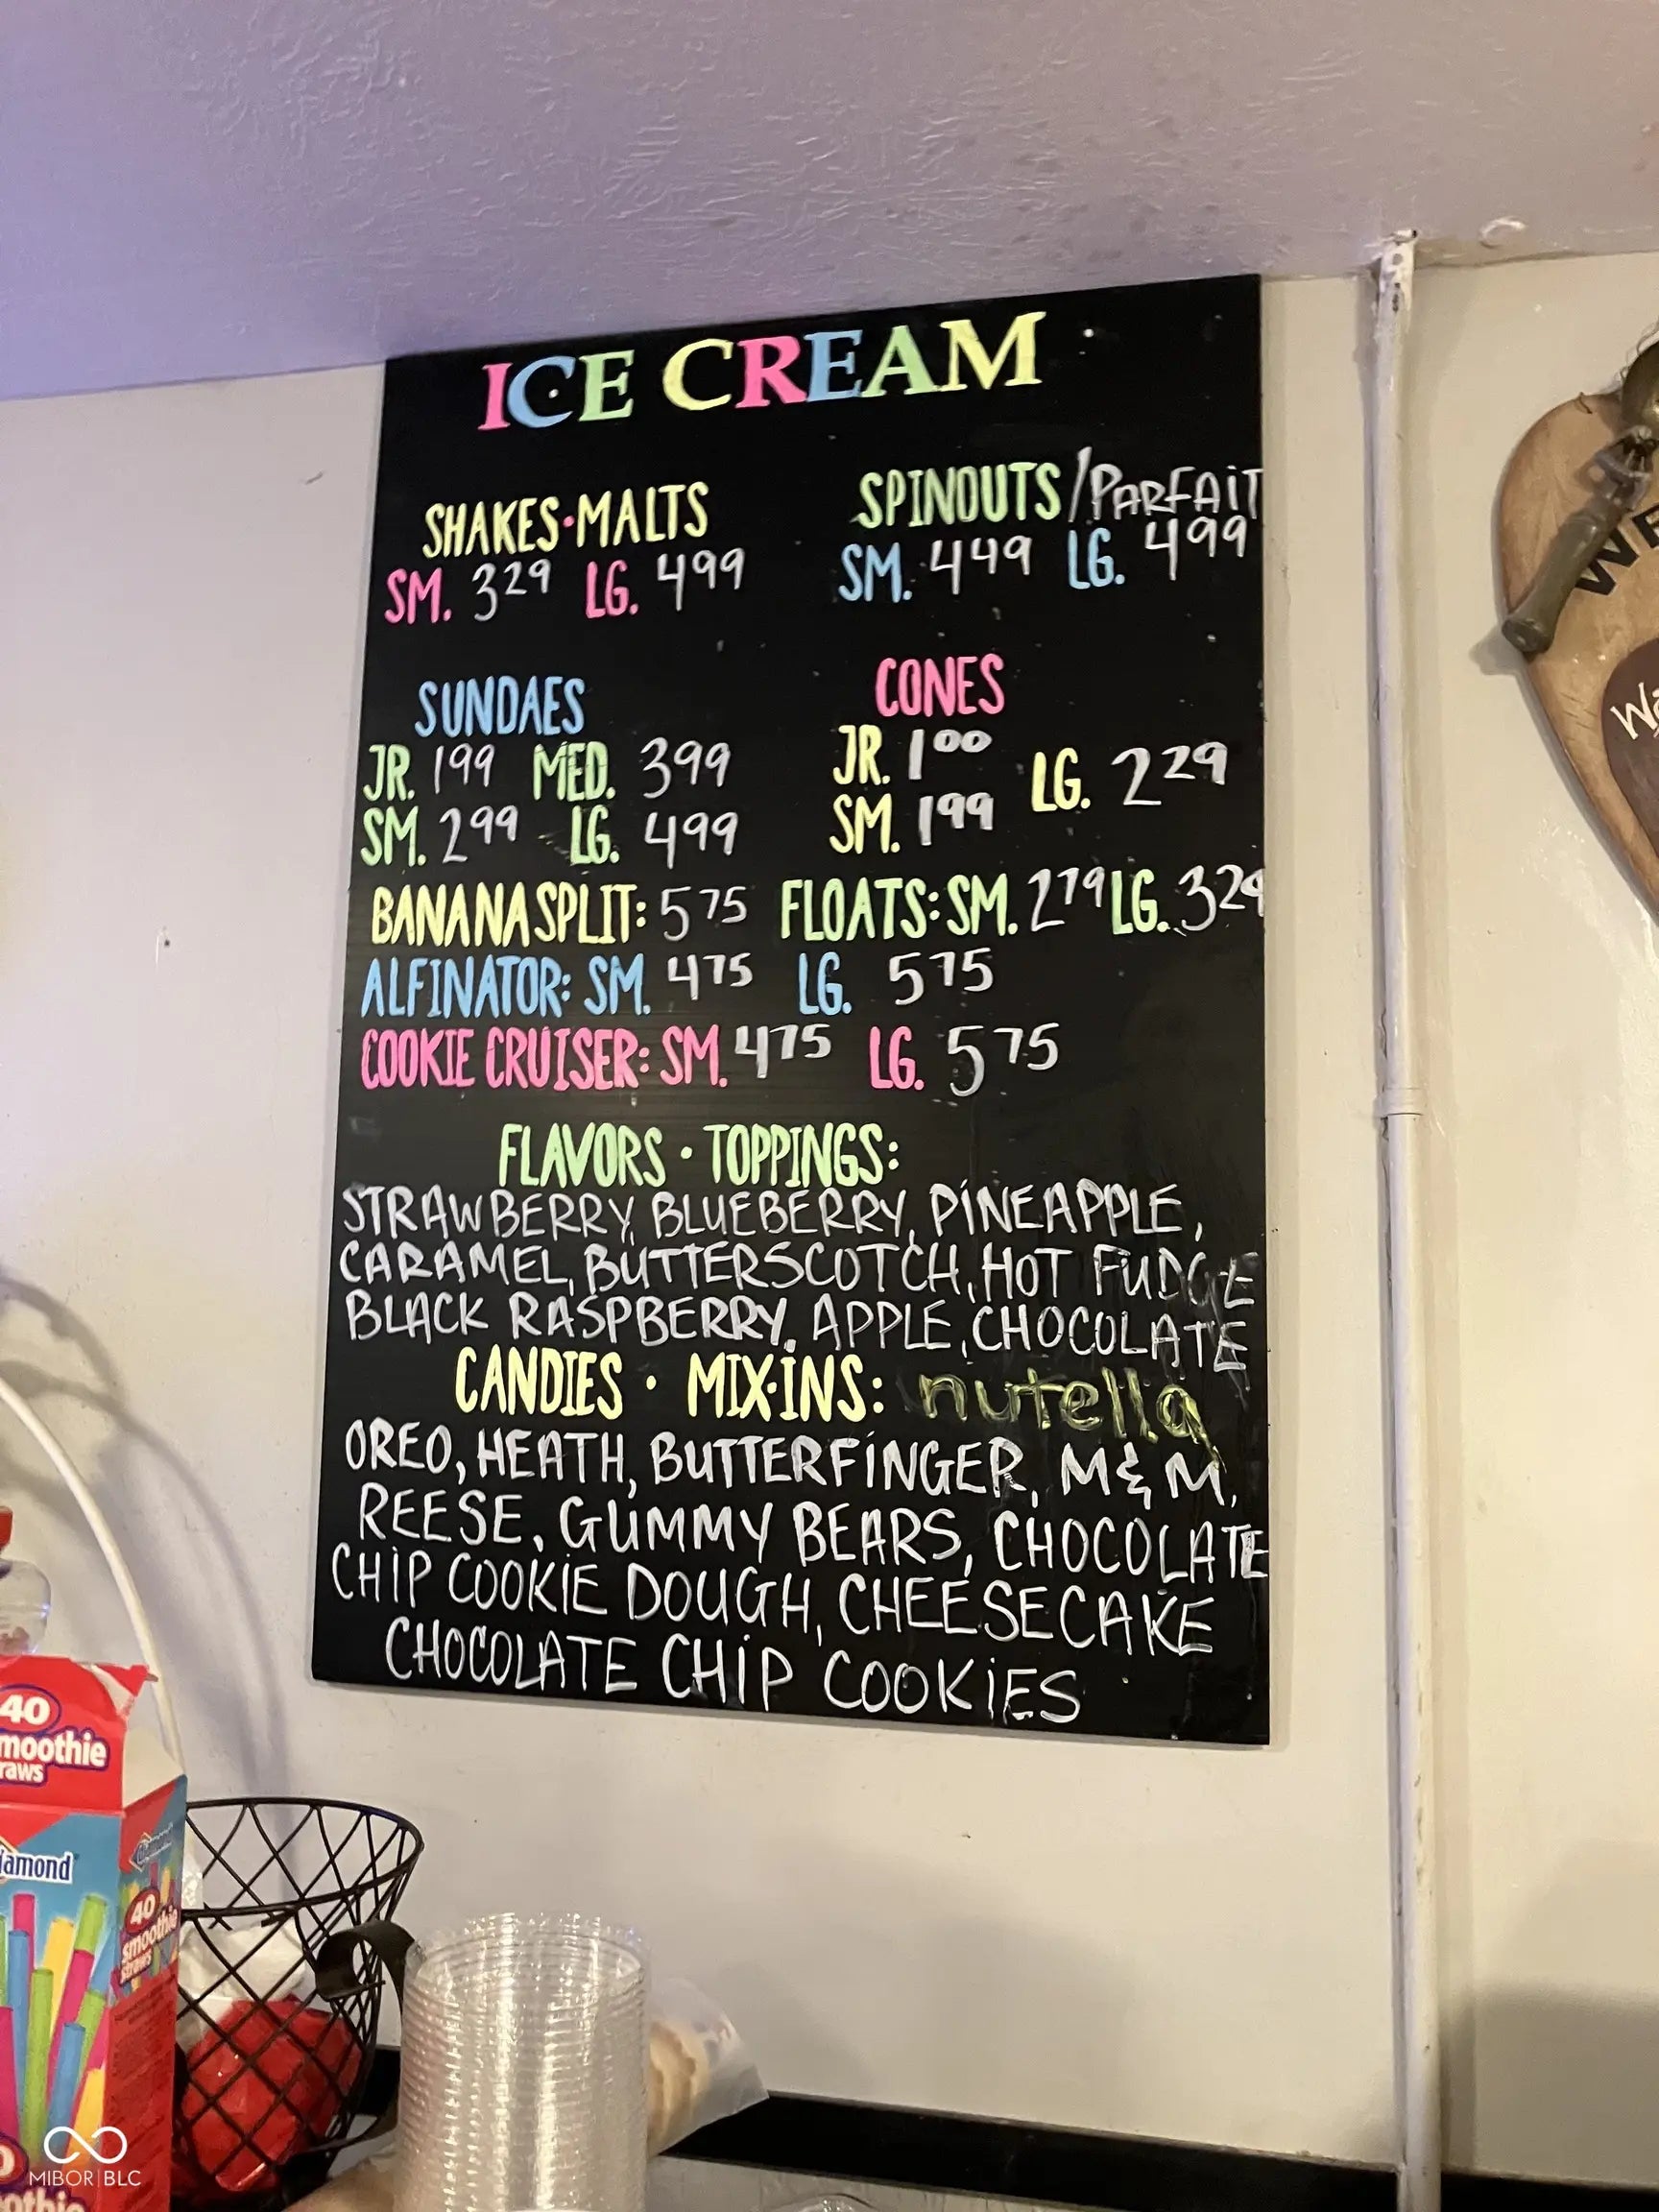 ICE CREAM
SHAKES·MALTS
SM. 329 LG. 499
SPINOUTS/PARFAIT
SM. 449 LG. 499
SUNDAES
JR. 199 MED. 399
SM. 299 LG. 499
CONES
JR. 100
SM. 199
LG. 229
BANANA SPLIT: 575 FLOATS: SM. 279 LG. 329
ALFINATOR: SM. 475 LG. 575
COOKIE CRUISER: SM. 475 LG. 575
FLAVORS · TOPPINGS:
STRAWBERRY, BLUEBERRY, PINEAPPLE,
CARAMEL, BUTTERSCOTCH, HOT FUDGE
BLACK RASPBERRY, APPLE, CHOCOLATE
CANDIES · MIX·INS: nutella
OREO, HEATH, BUTTERFINGER, M&M,
REESE, GUMMY BEARS, CHOCOLATE
CHIP COOKIE DOUGH, CHEESECAKE
CHOCOLATE CHIP COOKIES
WE
Wa
40
moothie
raws
iamond
40
smoothie
straws
MIBOR|BLC